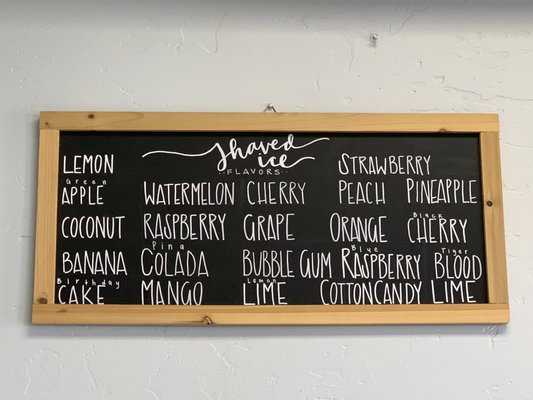 Shaved ice
FLAVORS..
LEMON STRAWBERRY
Green APPLE WATERMELON CHERRY PEACH PINEAPPLE
COCONUT RASPBERRY GRAPE ORANGE Black CHERRY
BANANA Pina COLADA BUBBLE GUM Blue RASPBERRY Tiger BLOOD
Birthday CAKE MANGO Lemon LIME COTTON CANDY LIME